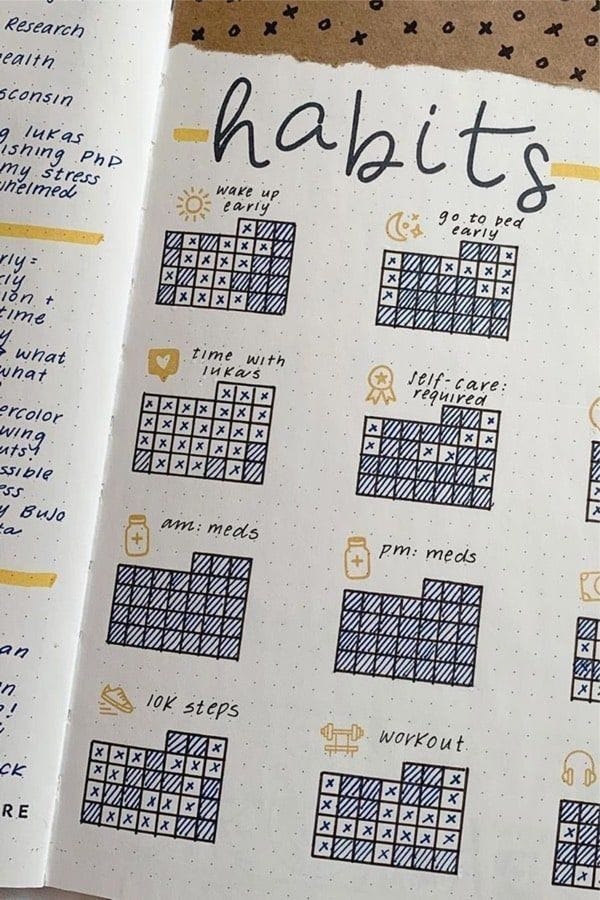 Research
ealth
sconsin
g lukas
ishing PhD
my stress
whelmed
time
what
what
ercolor
wing
ssible
Bujo
an
ck
RE
habits
wake up
early
go to bed
early
time with
lukas
self-care:
required
am: meds
pm: meds
10K steps
workout